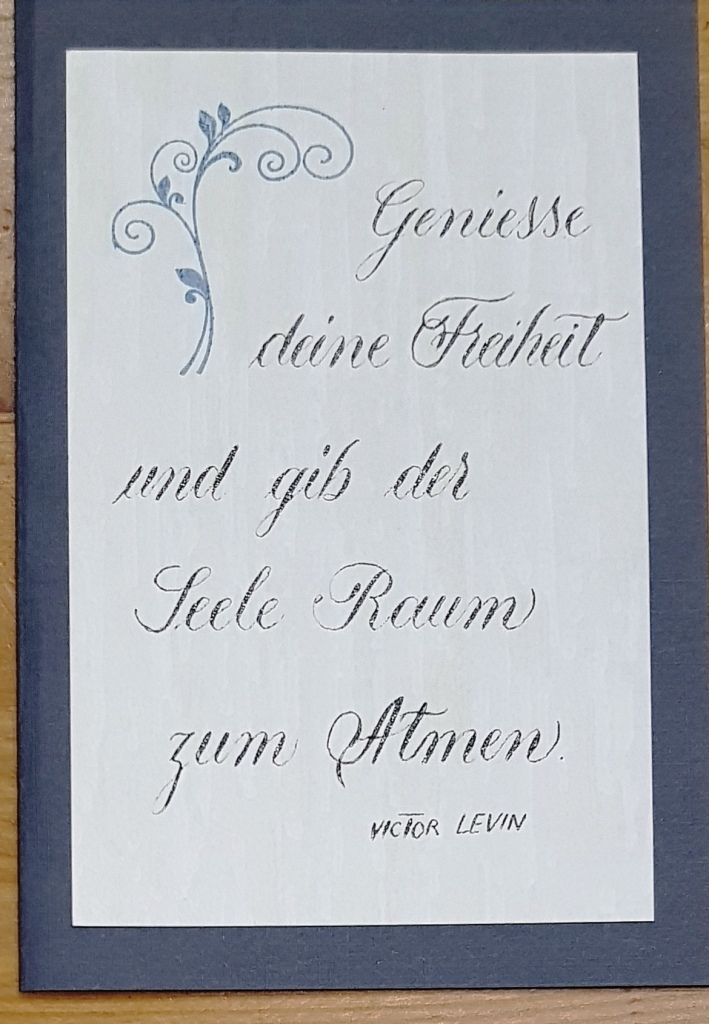 Geniesse
deine Freiheit
und gib der
Seele Raum
zum Atmen.
VICTOR LEVIN